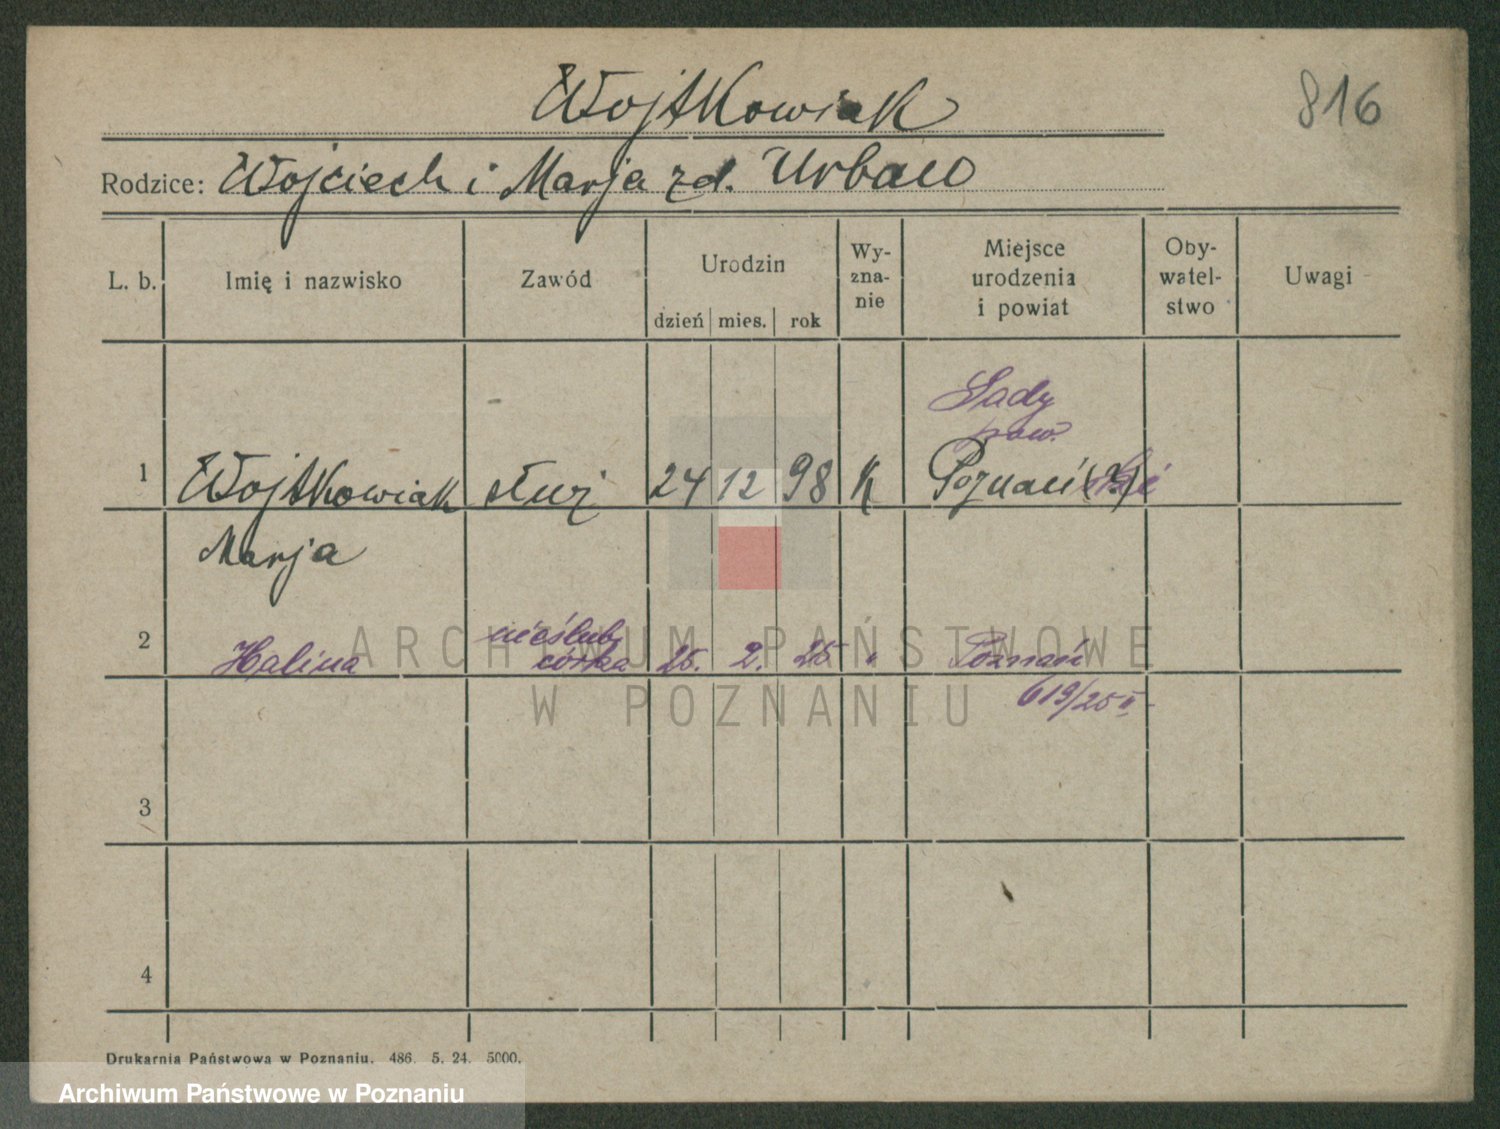 Wojtkowiak
816
Rodzice: Wojciech i Marja zd. Urban
L. b.
Imię i nazwisko
Zawód
Urodzin
dzień mies. rok
Wy-
zna-
nie
Miejsce
urodzenia
i powiat
Oby-
watel-
stwo
Uwagi
Sady
pow.
1 Wojtkowiak służ 24 12 98 K Poznań
Marja
nieślub.
2 Halina córka 25. 2. 25 " Poznań
619/25 II
3
4
ARCHIWUM PAŃSTWOWE
W POZNANIU
Drukarnia Państwowa w Poznaniu. 486. 5. 24. 5000.
Archiwum Państwowe w Poznaniu